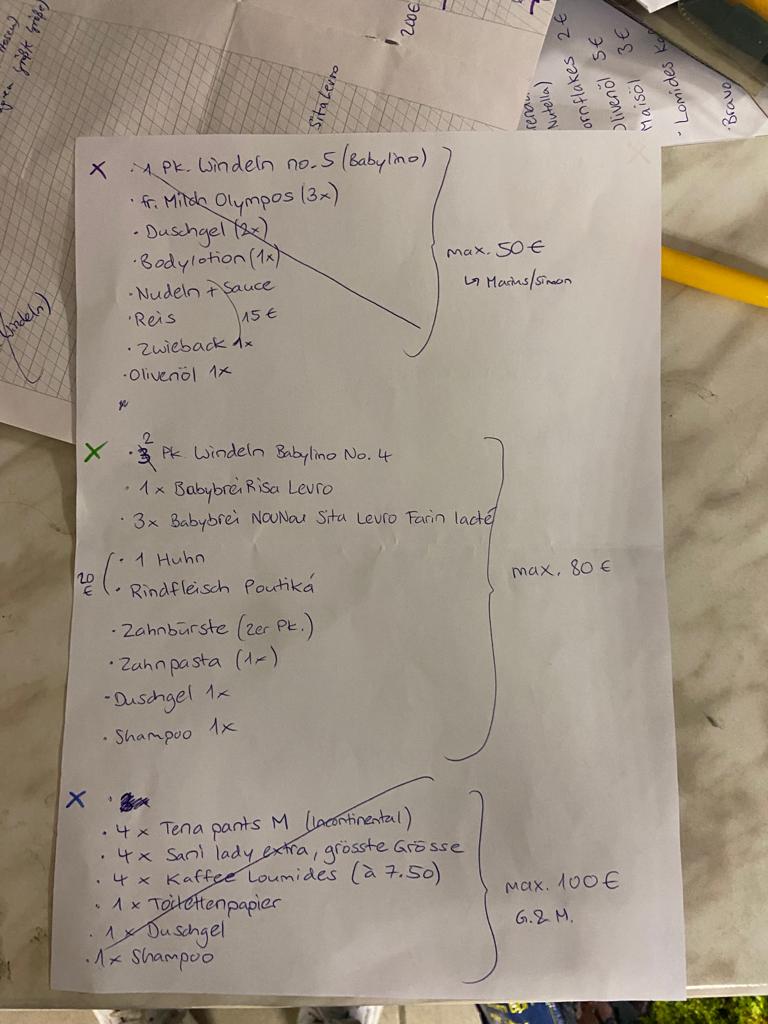 200€
Sita Levro
ornflakes 2€
Olivenöl 5€
Maisöl 3€
Nutella)
- Lomides
· Bravo
x · 1 Pk. Windeln no. 5 (Babylino)
· fr. Milch Olympos (3x)
· Duschgel (2x)
· Bodylotion (1x)
· Nudeln + Sauce
· Reis 15€
· Zwieback 1x
· Olivenöl 1x
max. 50€
↳ Marius/Simon
x · 2 Pk. Windeln Babylino No. 4
· 1x Babybrei Risa Levro
· 3x Babybrei NOUNou Sita Levro Farin lacté
20 € · 1 Huhn
· Rindfleisch Poutiká
· Zahnbürste (2er Pk.)
· Zahnpasta (1x)
- Duschgel 1x
· Shampoo 1x
max. 80€
x ·
· 4x Tena pants M (Incontinental)
· 4x Sani lady extra, grösste Grösse
· 4x Kaffee Loumides (à 7.50)
· 1x Toilettenpapier
· 1x Duschgel
· 1x Shampoo
max. 100€
G. 2 M.